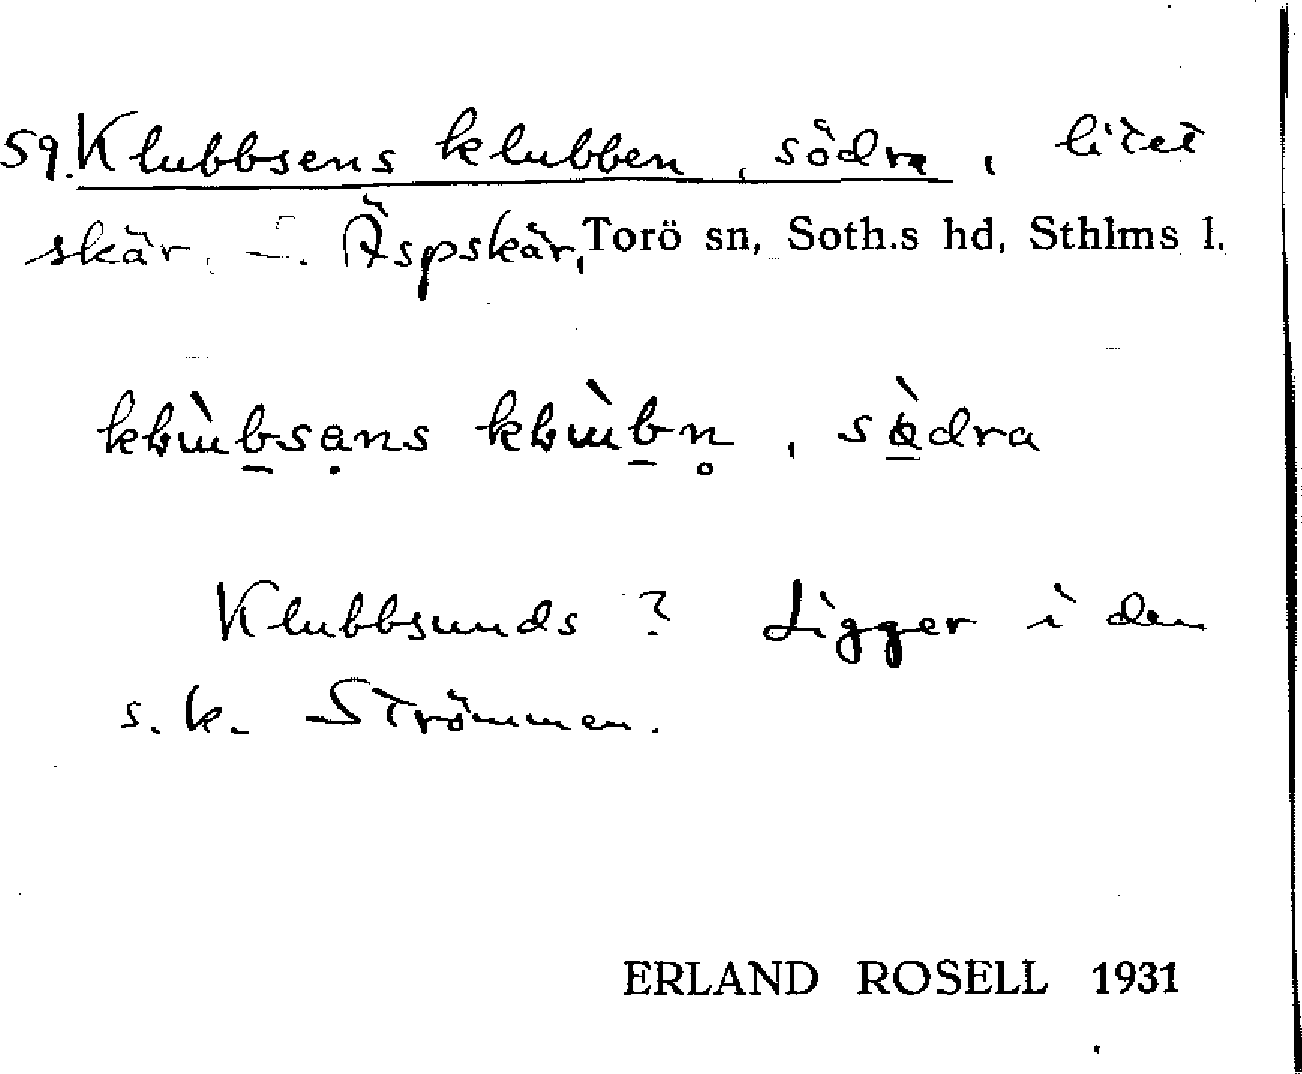 59. Klubbsens klubben, södra, litet
skär. –. Äspskär, Torö sn, Soth.s hd, Sthlms l.
södra
Klubbsunds? Ligger i den
s.k. Strömmen.
ERLAND ROSELL 1931